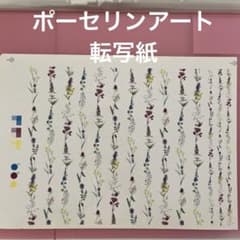 ポーセリンアート
転写紙